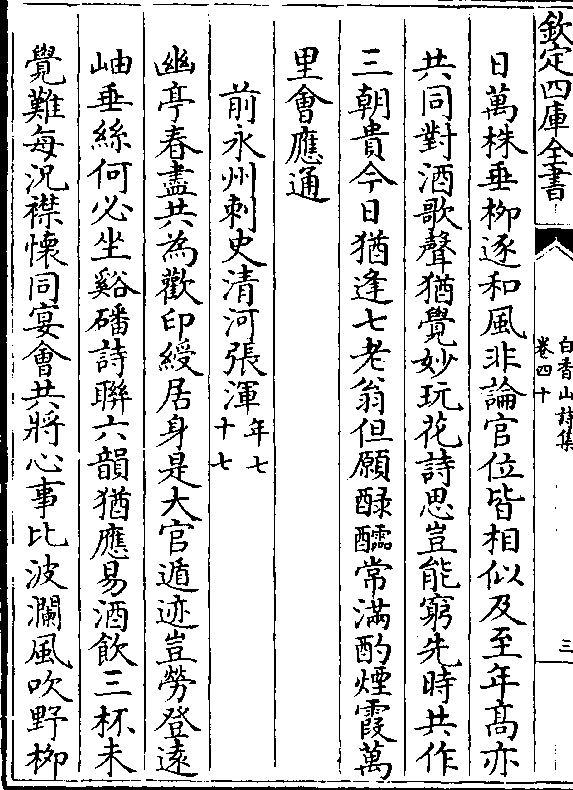 欽定四庫全書
白香山詩集
卷四十
三
日萬株垂柳逐和風非論官位皆相似及至年高亦
共同對酒歌聲猶覺妙玩花詩思豈能窮先時共作
三朝貴今日猶逢七老翁但願醁醽常滿酌煙霞萬
里會應通
前永州刺史清河張渾年七十七
幽亭春盡共為歡印綬居身是大官遁迹豈勞登遠
岫垂絲何必坐谿磻詩聯六韻猶應易酒飲三杯未
覺難每況襟懷同宴會共將心事比波瀾風吹野柳